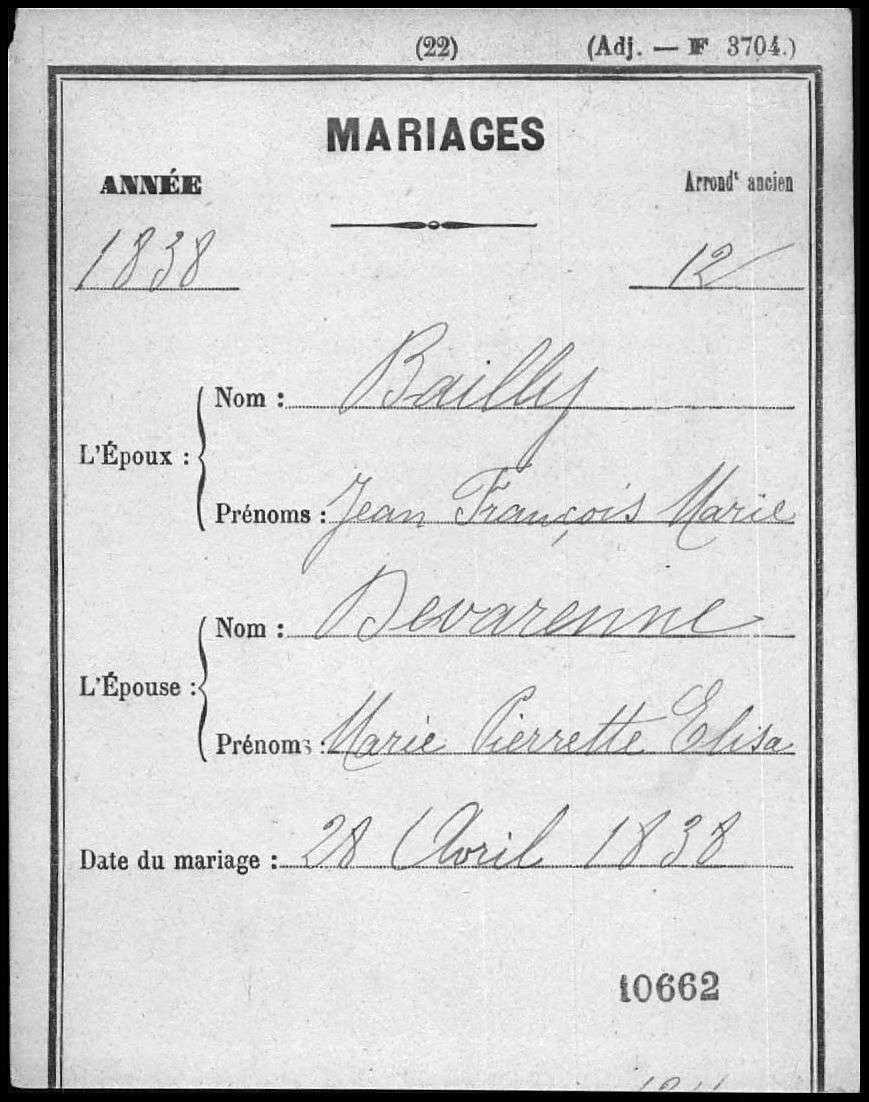 (22) (Adj. — F 3704.)
MARIAGES
ANNÉE Arrondt ancien
1838 12
L'Époux :
Nom : Bailly
Prénoms : Jean François Marie
L'Épouse :
Nom : Devarenne
Prénoms : Marie Pierrette Elisa
Date du mariage : 28 Avril 1838
10662